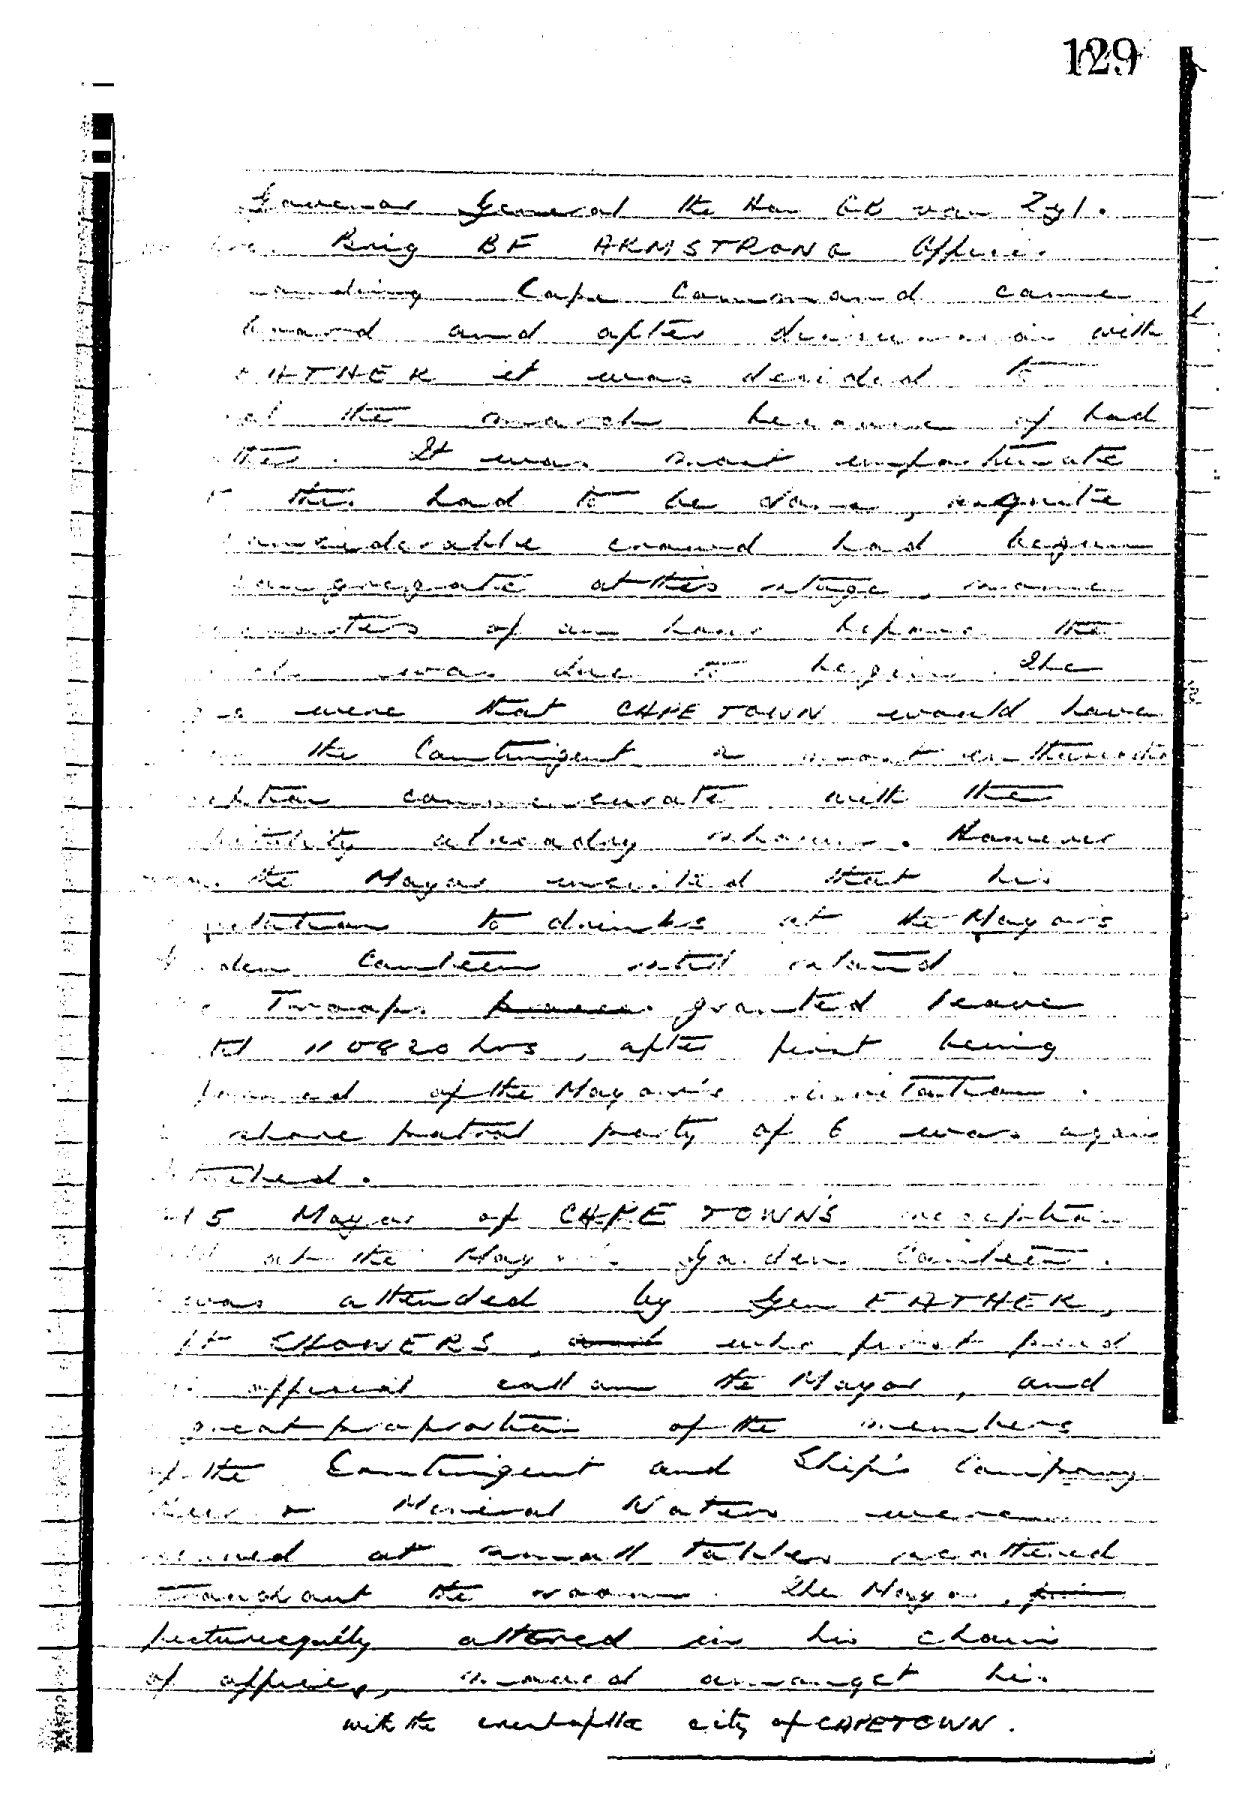 129
Governor General the Hon GB van Zyl.
Brig BF ARMSTRONG Officer
anding Cape Command came
board and after discussion with
EATHER it was decided to
el the march because of bad
ther. It was most unfortunate
t this had to be done, as quite
considerable crowd had begun
congregate at this stage, some
quarters of an hour before the
was due to begin. The
s were that CAPE TOWN would have
the Contingent a most enthusiastic
eption commensurate with the
pitality already shown. However
the Mayor insisted that his
invitation to drinks at the Mayor's
den Canteen still stand
Troops granted leave
til 110820 hrs, after first being
formed of the Mayor's invitation.
shore patrol party of 6 was again
tached.
15 Mayor of CAPE TOWN'S reception
at the Mayor's Garden Canteen.
was attended by Gen EATHER,
Lt SHOWERS, and who first paid
official call on the Mayor, and
great proportion of the members
of the Contingent and Ship's Company
Beer + Mineral Waters were
served at small tables scattered
throughout the room. The Mayor,
picturesquely attired in his chain
of office, moved amongst his
with the crest of the city of CAPETOWN.